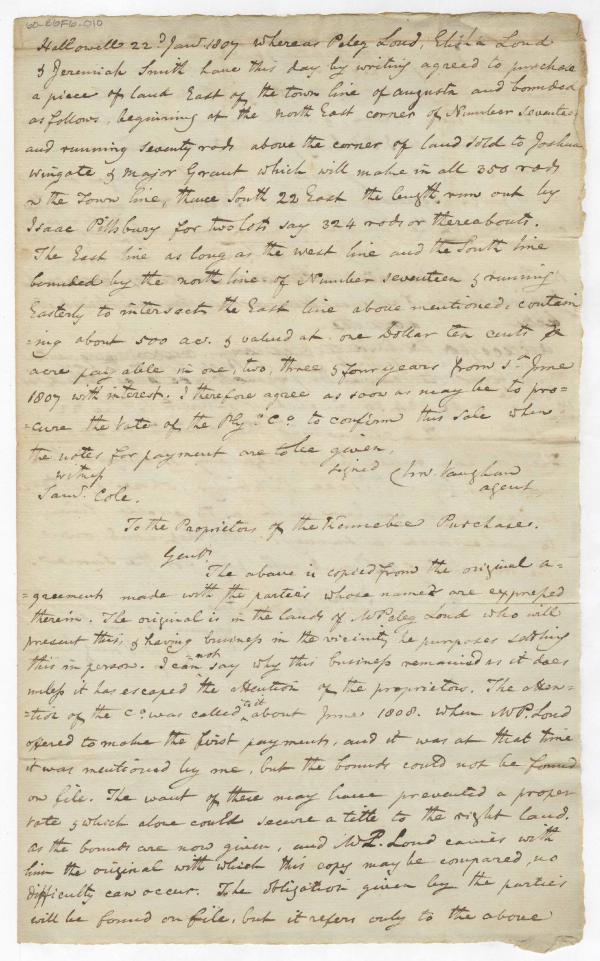 Hallowell 22d Janr. 1807 whereas Peleg Loud, Elisha Loud
& Jeremiah Smith have this day by writing agreed to purchase
a piece of land East of the town line of augusta and bounded
as follows, beginning at the north East corner of Number seventeen
and running seventy rods above the corner of land sold to Joshua
Wingate & Major Grant which will make in all 350 rods
on the Town line, thence South 22 East the length run out by
Isaac Pillsbury for two lots say 324 rods or thereabouts.
The East line as long as the west line and the South line
bounded by the north line of Number seventeen & running
Easterly to intersect the East line above mentioned, contain
=ing about 500 ac. & valued at one Dollar ten cents
acre payable in one, two, three & four years from 1st June
1807 with interest. I therefore agree as soon as may be to pro=
=cure the Vote of the Ply. Co. to confirm this sale when
the notes for payment are to be given.
witness
signed Chas. Vaughan
Saml. Cole.
agent
To the Proprietors of the Kennebec Purchase.
Gentn.
The above is copied from the original a-
=greement made with the parties whose names are expressed
therein. The original is in the hands of Mr Peleg Loud who will
present this, & having business in the vicinity he purposes settling
this in person. I can not say why this business remained as it does
unless it has escaped the attention of the proprietors. The atten-
-tion of the Co. was called to it about June 1808. When Mr P. Loud
offered to make the first payments, and it was at that time
it was mentioned by me, but the bounds could not be found
on file. The want of these may have prevented a proper
vote & which alone could secure a title to the right land.
as the bounds are now given, and Mr P. Loud carries with
him the original with which this copy may be compared, no
difficulty can occur. The obligation given by the parties
will be found on file, but it refers only to the above